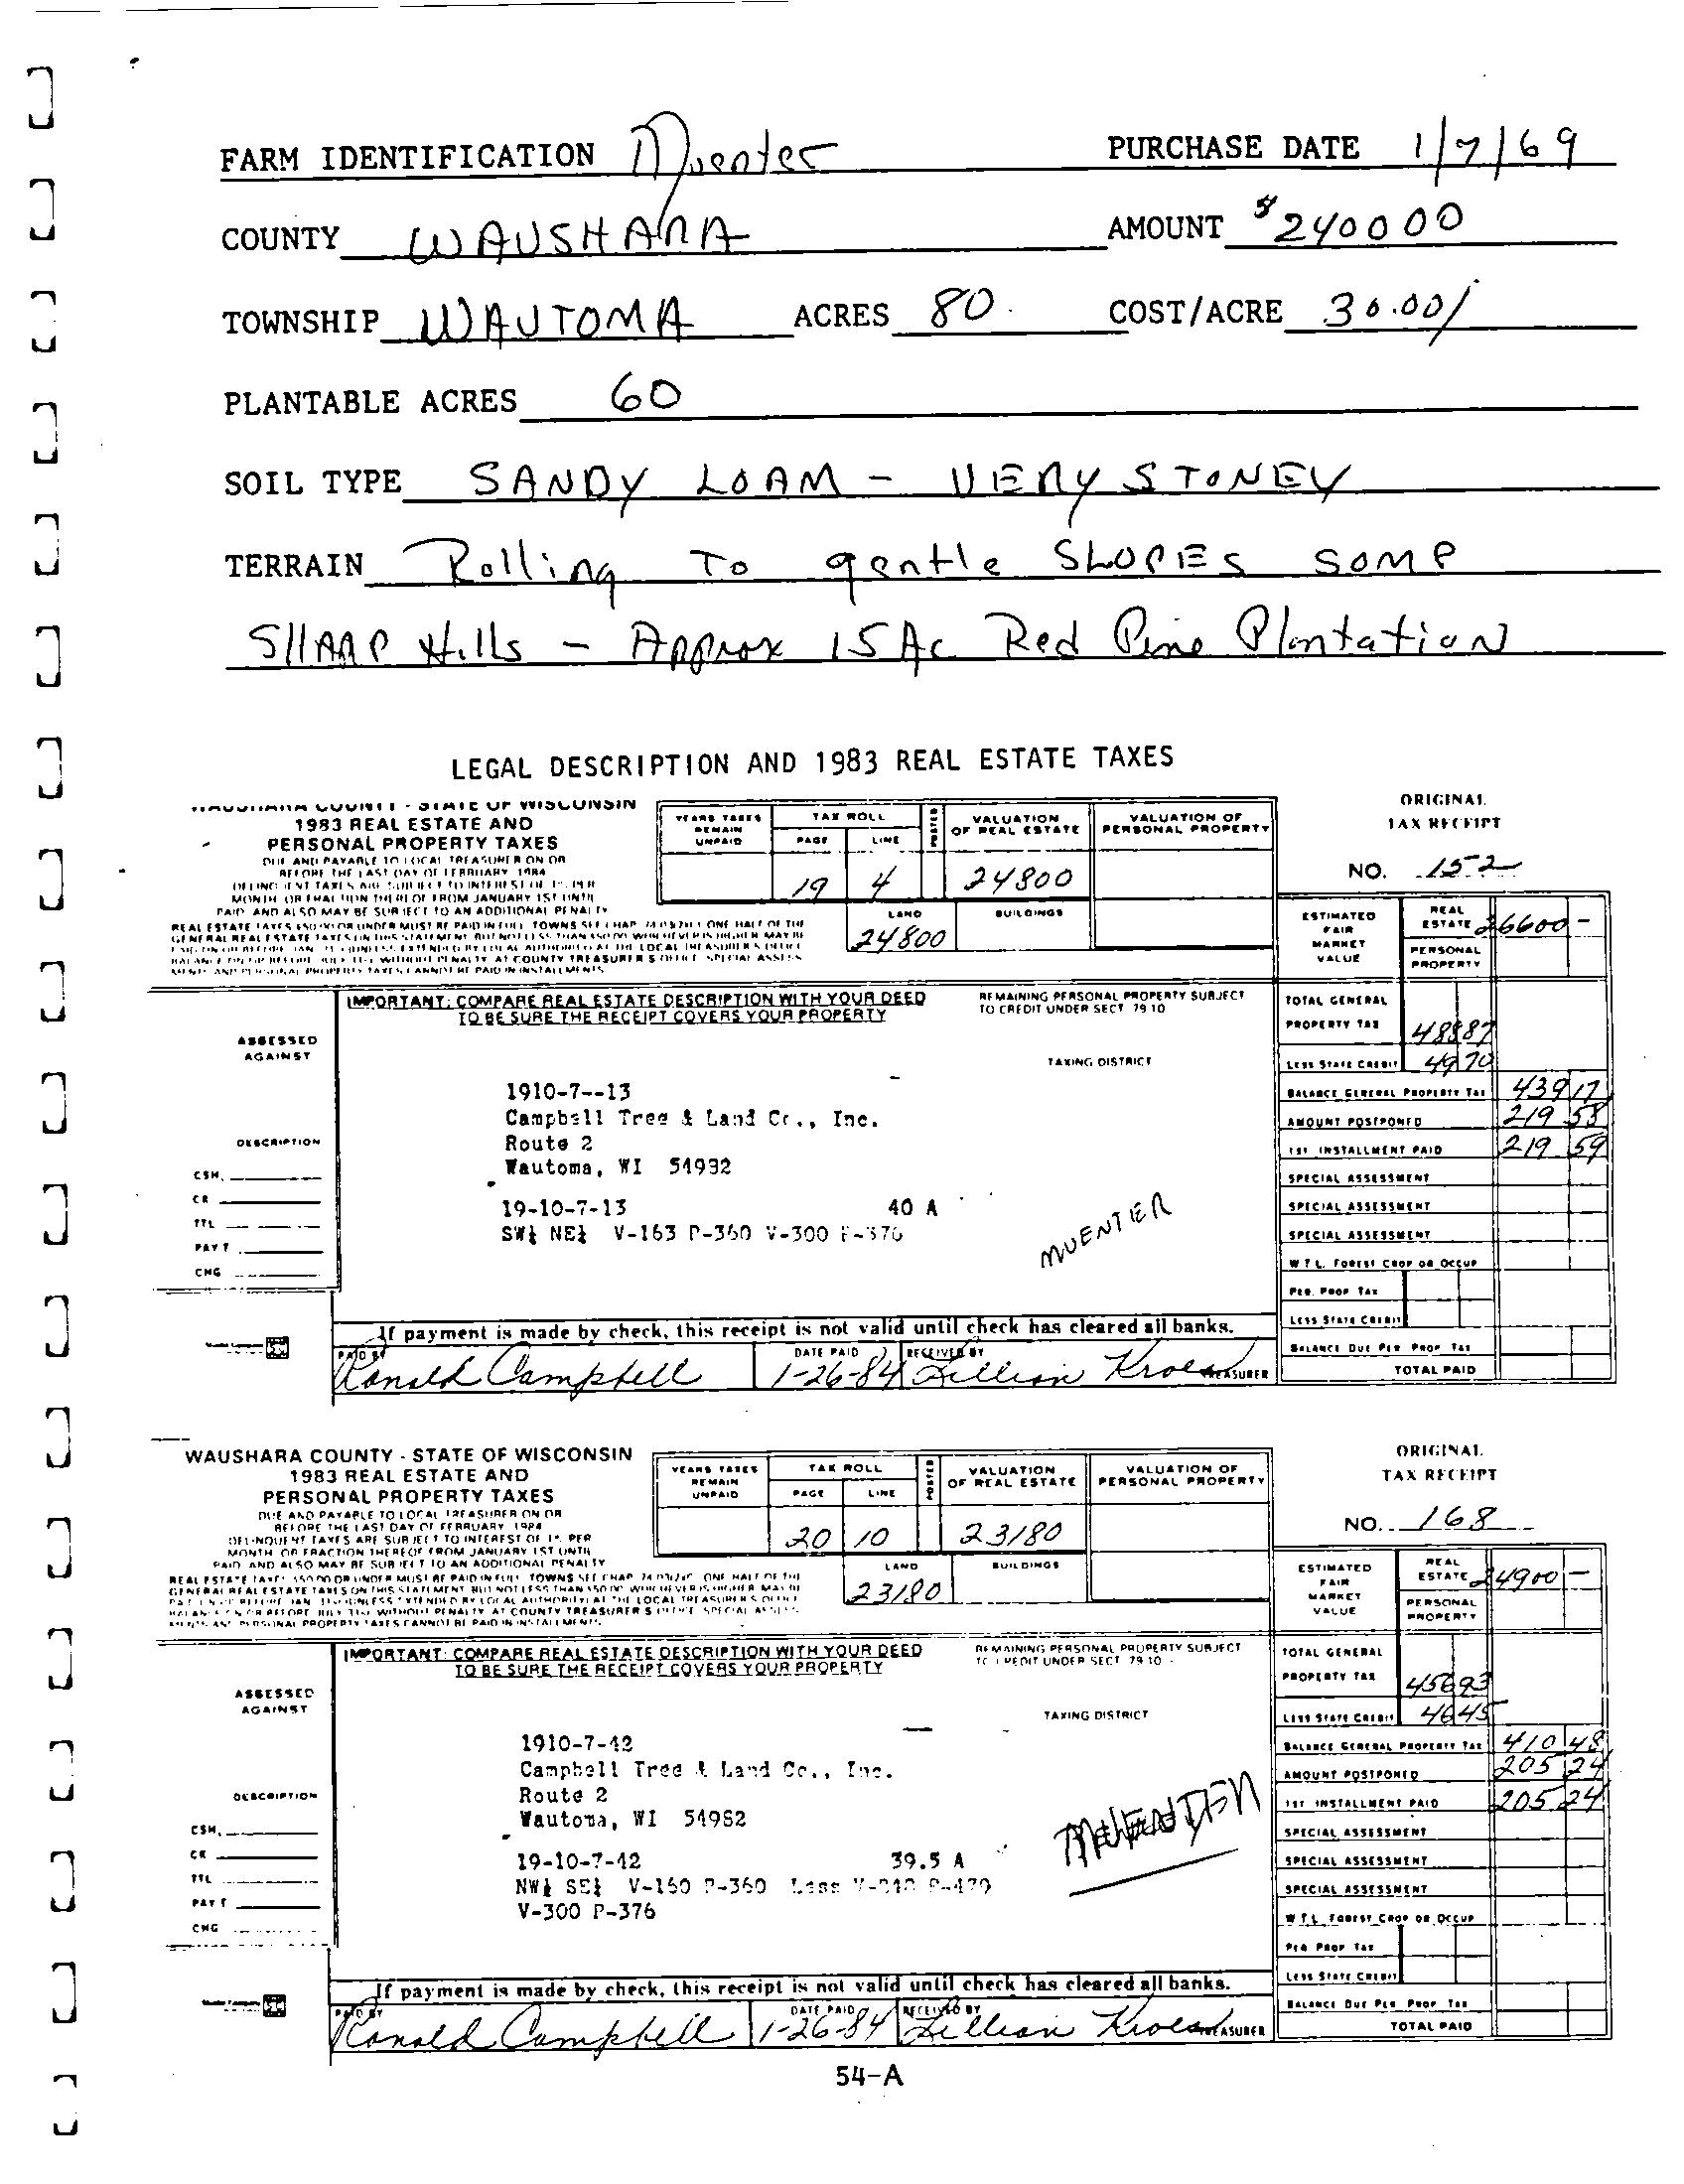 FARM IDENTIFICATION Muenter PURCHASE DATE 1/7/69
COUNTY WAUSHARA AMOUNT $240000
TOWNSHIP WAUTOMA ACRES 80. COST/ACRE 30.00/
PLANTABLE ACRES 60
SOIL TYPE SANDY LOAM - VERY STONEY
TERRAIN Rolling To gentle SLOPES SOME
SHARP Hills - Approx 15 Ac Red Pine Plantation
LEGAL DESCRIPTION AND 1983 REAL ESTATE TAXES
WAUSHARA COUNTY - STATE OF WISCONSIN
1983 REAL ESTATE AND
PERSONAL PROPERTY TAXES
DUE AND PAYABLE TO LOCAL TREASURER ON OR
BEFORE THE LAST DAY OF FEBRUARY 1984
YEARS TAXES REMAIN UNPAID
TAX ROLL
PAGE LINE
POSTED
VALUATION OF REAL ESTATE
VALUATION OF PERSONAL PROPERTY
19 4 24800
LAND BUILDINGS
24800
ORIGINAL
TAX RECEIPT
NO. 152
ESTIMATED FAIR MARKET VALUE
REAL ESTATE 26600-
PERSONAL PROPERTY
IMPORTANT: COMPARE REAL ESTATE DESCRIPTION WITH YOUR DEED
TO BE SURE THE RECEIPT COVERS YOUR PROPERTY
REMAINING PERSONAL PROPERTY SUBJECT
TO CREDIT UNDER SECT 79.10
ASSESSED
AGAINST
TAXING DISTRICT
1910-7--13
Campbell Tree & Land Co., Inc.
Route 2
Wautoma, WI 54982
DESCRIPTION
CSH.
CK
TTL
PAY'T
CHG
19-10-7-13 40 A
SW¼ NE¼ V-163 P-360 V-300 P-376
MUENTER
TOTAL GENERAL
PROPERTY TAX 48887
LESS STATE CREDIT 4970
BALANCE GENERAL PROPERTY TAX 439 17
AMOUNT POSTPONED 219 58
1ST INSTALLMENT PAID 219 59
SPECIAL ASSESSMENT
SPECIAL ASSESSMENT
SPECIAL ASSESSMENT
W T L. FOREST CROP OR OCCUP
PER. PROP TAX
LESS STATE CREDIT
BALANCE DUE PER PROP TAX
TOTAL PAID
If payment is made by check, this receipt is not valid until check has cleared all banks.
PAID BY Ronald Campbell DATE PAID 1-26-84 RECEIVED BY Lillian TREASURER
WAUSHARA COUNTY - STATE OF WISCONSIN
1983 REAL ESTATE AND
PERSONAL PROPERTY TAXES
DUE AND PAYABLE TO LOCAL TREASURER ON OR
BEFORE THE LAST DAY OF FEBRUARY 1984
DELINQUENT TAXES ARE SUBJECT TO INTEREST OF 1% PER
MONTH OR FRACTION THEREOF FROM JANUARY 1ST UNTIL
PAID AND ALSO MAY BE SUBJECT TO AN ADDITIONAL PENALTY
YEARS TAXES REMAIN UNPAID
TAX ROLL
PAGE LINE
POSTED
VALUATION OF REAL ESTATE
VALUATION OF PERSONAL PROPERTY
20 10 23180
LAND BUILDINGS
23180
ORIGINAL
TAX RECEIPT
NO. 168
ESTIMATED FAIR MARKET VALUE
REAL ESTATE 24900-
PERSONAL PROPERTY
IMPORTANT: COMPARE REAL ESTATE DESCRIPTION WITH YOUR DEED
TO BE SURE THE RECEIPT COVERS YOUR PROPERTY
REMAINING PERSONAL PROPERTY SUBJECT
TO CREDIT UNDER SECT 79.10
ASSESSED
AGAINST
TAXING DISTRICT
1910-7-42
Campbell Tree & Land Co., Inc.
Route 2
Wautoma, WI 54982
DESCRIPTION
CSH.
CK
TTL
PAY'T
CHG
19-10-7-42 39.5 A
NW¼ SE¼ V-160 P-360 Less P-479
V-300 P-376
MUENTER
TOTAL GENERAL
PROPERTY TAX 45693
LESS STATE CREDIT 4645
BALANCE GENERAL PROPERTY TAX 410 48
AMOUNT POSTPONED 205 24
1ST INSTALLMENT PAID 205 24
SPECIAL ASSESSMENT
SPECIAL ASSESSMENT
SPECIAL ASSESSMENT
W T L FOREST CROP OR OCCUP
PER PROP TAX
LESS STATE CREDIT
BALANCE DUE PER PROP TAX
TOTAL PAID
If payment is made by check, this receipt is not valid until check has cleared all banks.
PAID BY Ronald Campbell DATE PAID 1-26-84 RECEIVED BY Lillian TREASURER
54-A